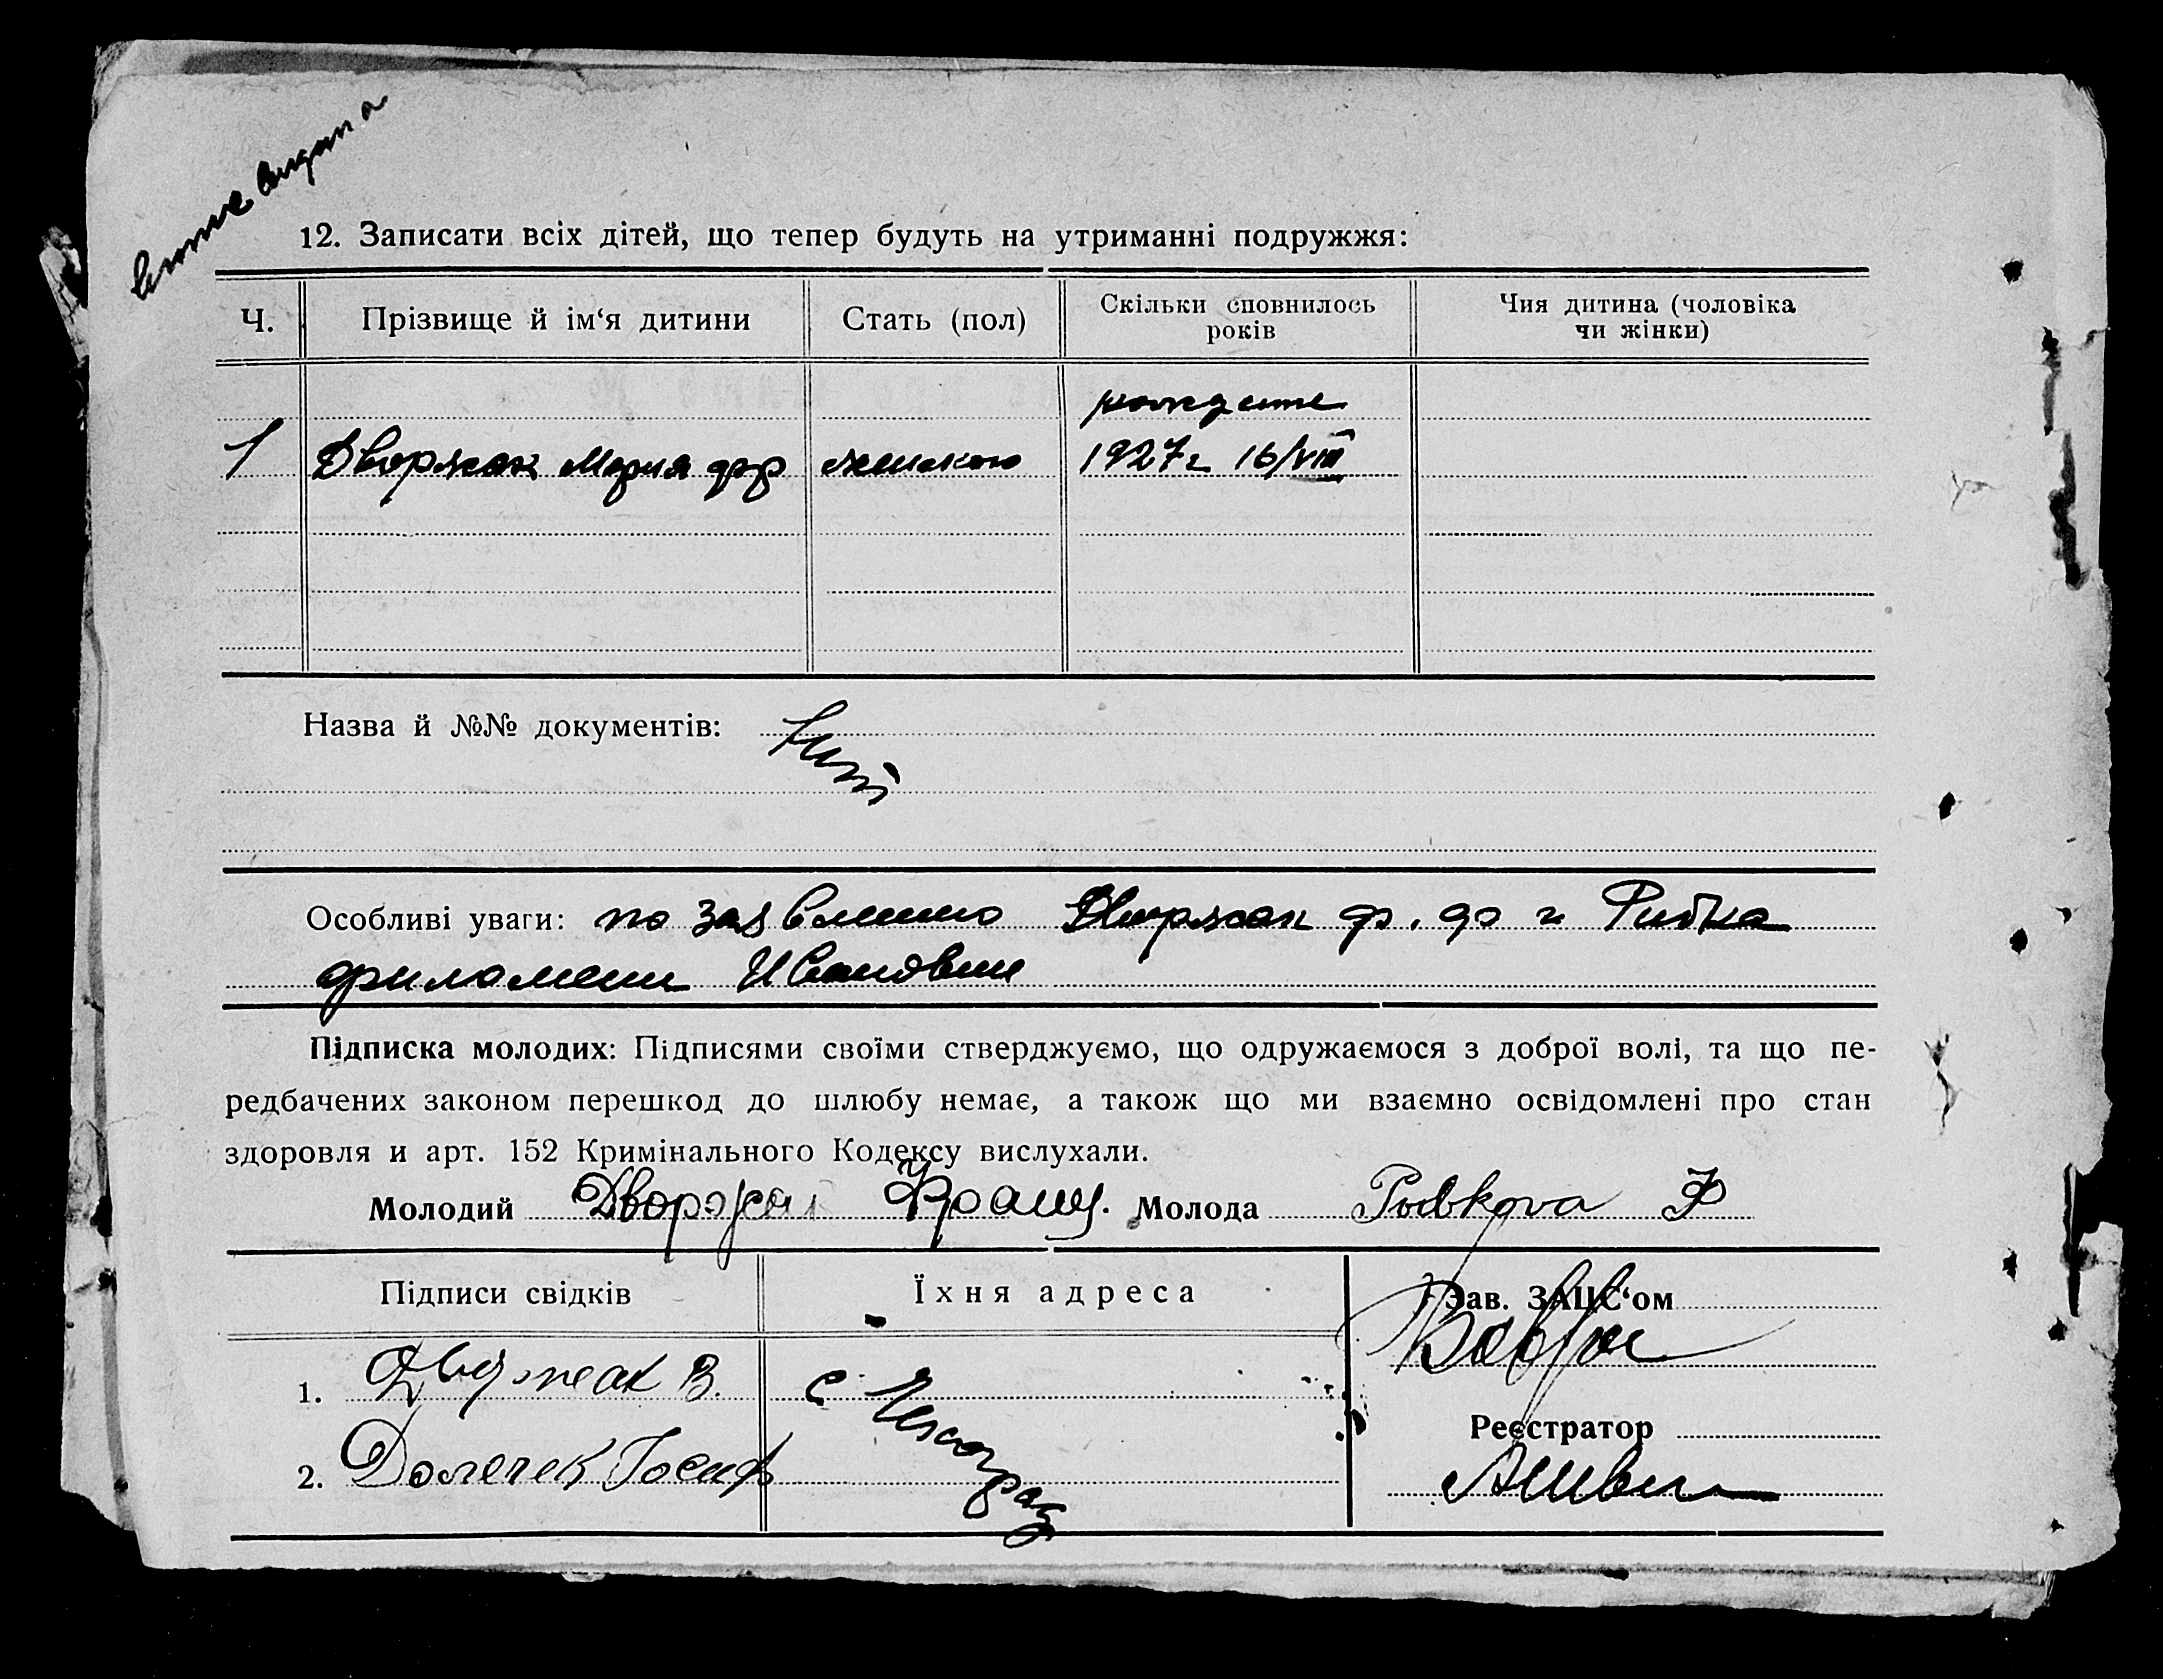 12. Записати всіх дітей, що тепер будуть на утриманні подружжя:
Ч.
Прізвище й ім‘я дитини
Стать (пол)
Скільки сповнилось
років
Чия дитина (чоловіка
чи жінки)
1 Дворжак Мария 1927 г 16/VIII
Назва й №№ документів:
Особливі уваги: по заявлению Дворжак ф. и Рибка
филомени Ивановни
Підписка молодих: Підписями своїми стверджуємо, що одружаємося з доброї волі, та що пе-
редбачених законом перешкод до шлюбу немає, а також що ми взаємно освідомлені про стан
здоровля и арт. 152 Кримінального Кодексу вислухали.
Молодий Дворжак Франц. Молода
Підписи свідків
Їхня адреса
Зав. ЗАЦС‘ом
1. В. с.
Реєстратор
2. Йосиф